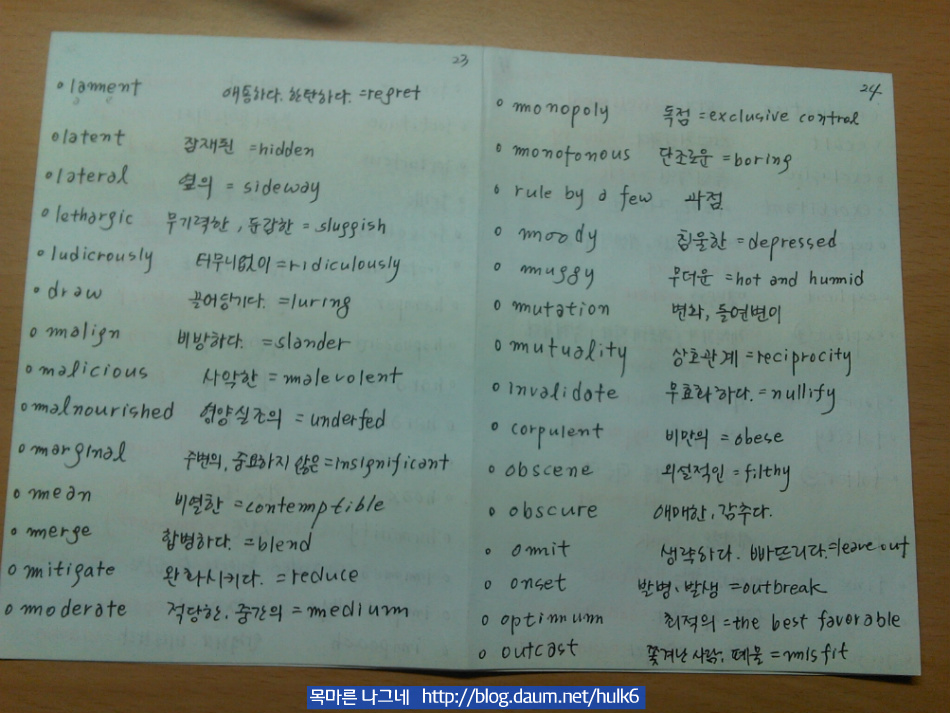 23
lament 애통하다. 한탄하다. =regret
latent 잠재된 =hidden
lateral 옆의 = sideway
lethargic 무기력한, 둔감한 = sluggish
ludicrously 터무니없이 =ridiculously
draw 끌어당기다. =luring
malign 비방하다. =slander
malicious 사악한 =malevolent
malnourished 영양실조의 = underfed
marginal 주변의, 중요하지 않은 =insignificant
mean 비열한 =contemptible
merge 합병하다. =blend
mitigate 완화시키다. =reduce
moderate 적당한, 중간의 = medium
24
monopoly 독점 =exclusive control
monotonous 단조로운 =boring
rule by a few 과점
moody 침울한 =depressed
muggy 무더운 =hot and humid
mutation 변화, 돌연변이
mutuality 상호관계 =reciprocity
invalidate 무효화하다. =nullify
corpulent 비만의 =obese
obscene 외설적인 =filthy
obscure 애매한, 감추다.
omit 생략하다. 빠뜨리다.=leave out
onset 발병, 발생 =outbreak
optimum 최적의 =the best favorable
outcast 쫓겨난 사람, 폐물 =misfit
목마른 나그네 http://blog.daum.net/hulk6